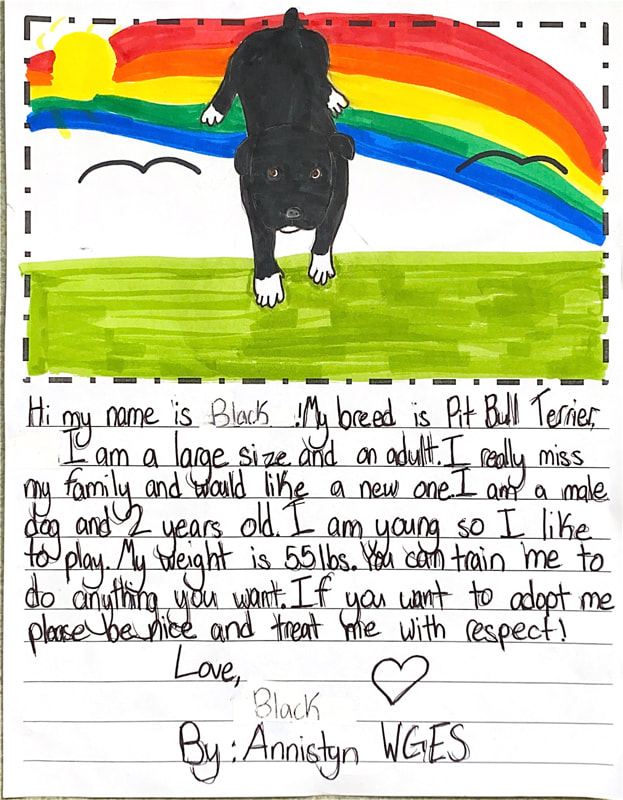 Hi my name is Black !My breed is Pit Bull Terrier,
I am a large size and an adult. I really miss
my family and would like a new one. I am a male
dog and 2 years old. I am young so I like
to play. My weight is 55lbs. You can train me to
do anything you want. If you want to adopt me
please be nice and treat me with respect!
Love,
Black
By: Annistyn WGES